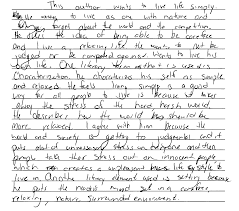 This author wants to live life simply.
He wants to live as one with nature and
forget about the world and the corruption.
He likes the idea of being able to be carefree
and live a relaxing life. He wants to not be
judged or be compared to someone. Wants to live his
best life. One literary element used is
Characterization he charterizes his self as simple
and relaxed. He feels living simply is a good
way for all people to life is because it takes
away the stress of the hard, harsh world.
He describes how the world should be
more relaxed. I agree with him because the
world and society is getting to judgmental and it
puts alot of unnecessary stress on everyone and then
people take their stress out on innocent people
which creates a unpleasant life style to
live in. Another literary element used is setting because
he puts the readers mind set in a carefree,
relaxing, nature surrounded environment.